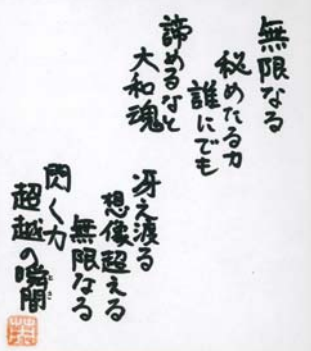 無限なる
秘めたる力
誰にでも
諦めるなと
大和魂
冴え渡る
想像超える
無限なる
閃く力
超越の瞬間
とき